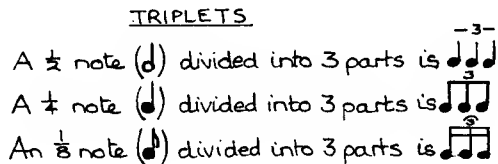 TRIPLETS
A ½ note (𝅗𝅥) divided into 3 parts is -3- ♩♩♩
A ¼ note (♩) divided into 3 parts is 3
An ⅛ note (♪) divided into 3 parts is 3